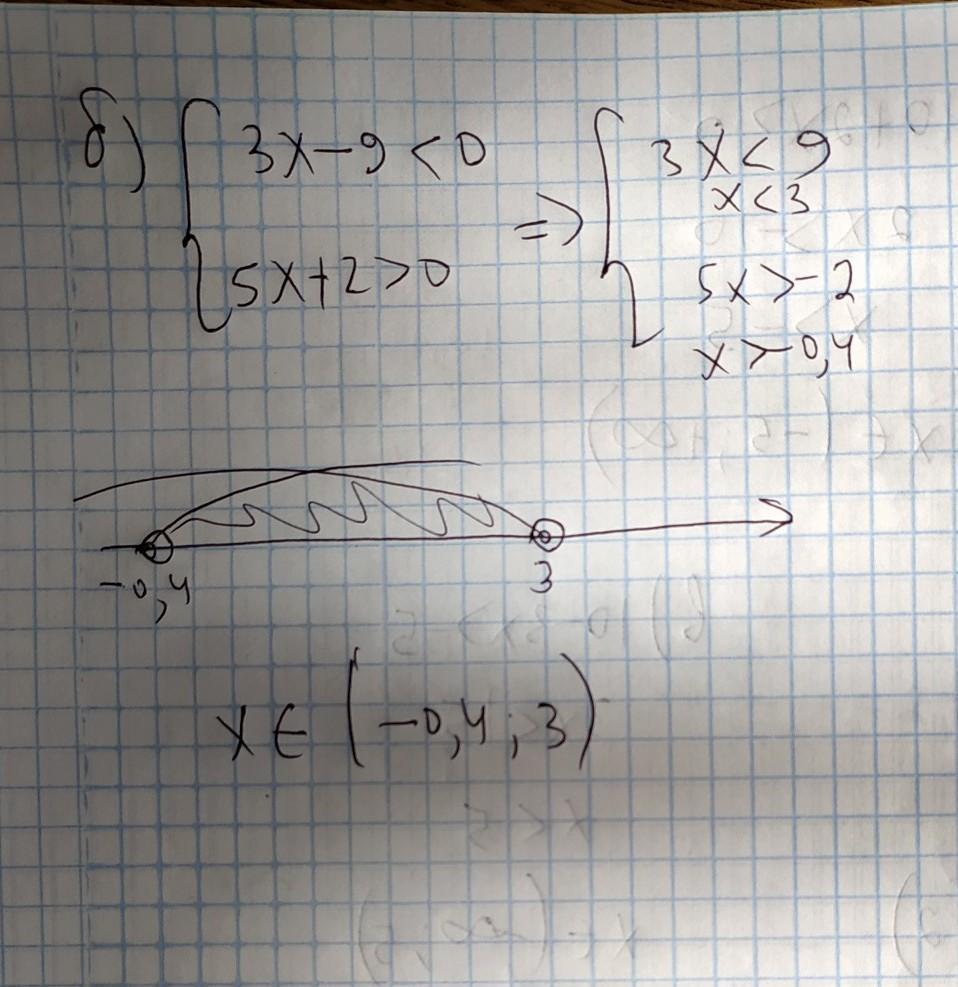 б) { 3x-9<0
5x+2>0
=> { 3x<9
x<3
5x>-2
x>-0,4
-0,4 3
x∈(-0,4;3)